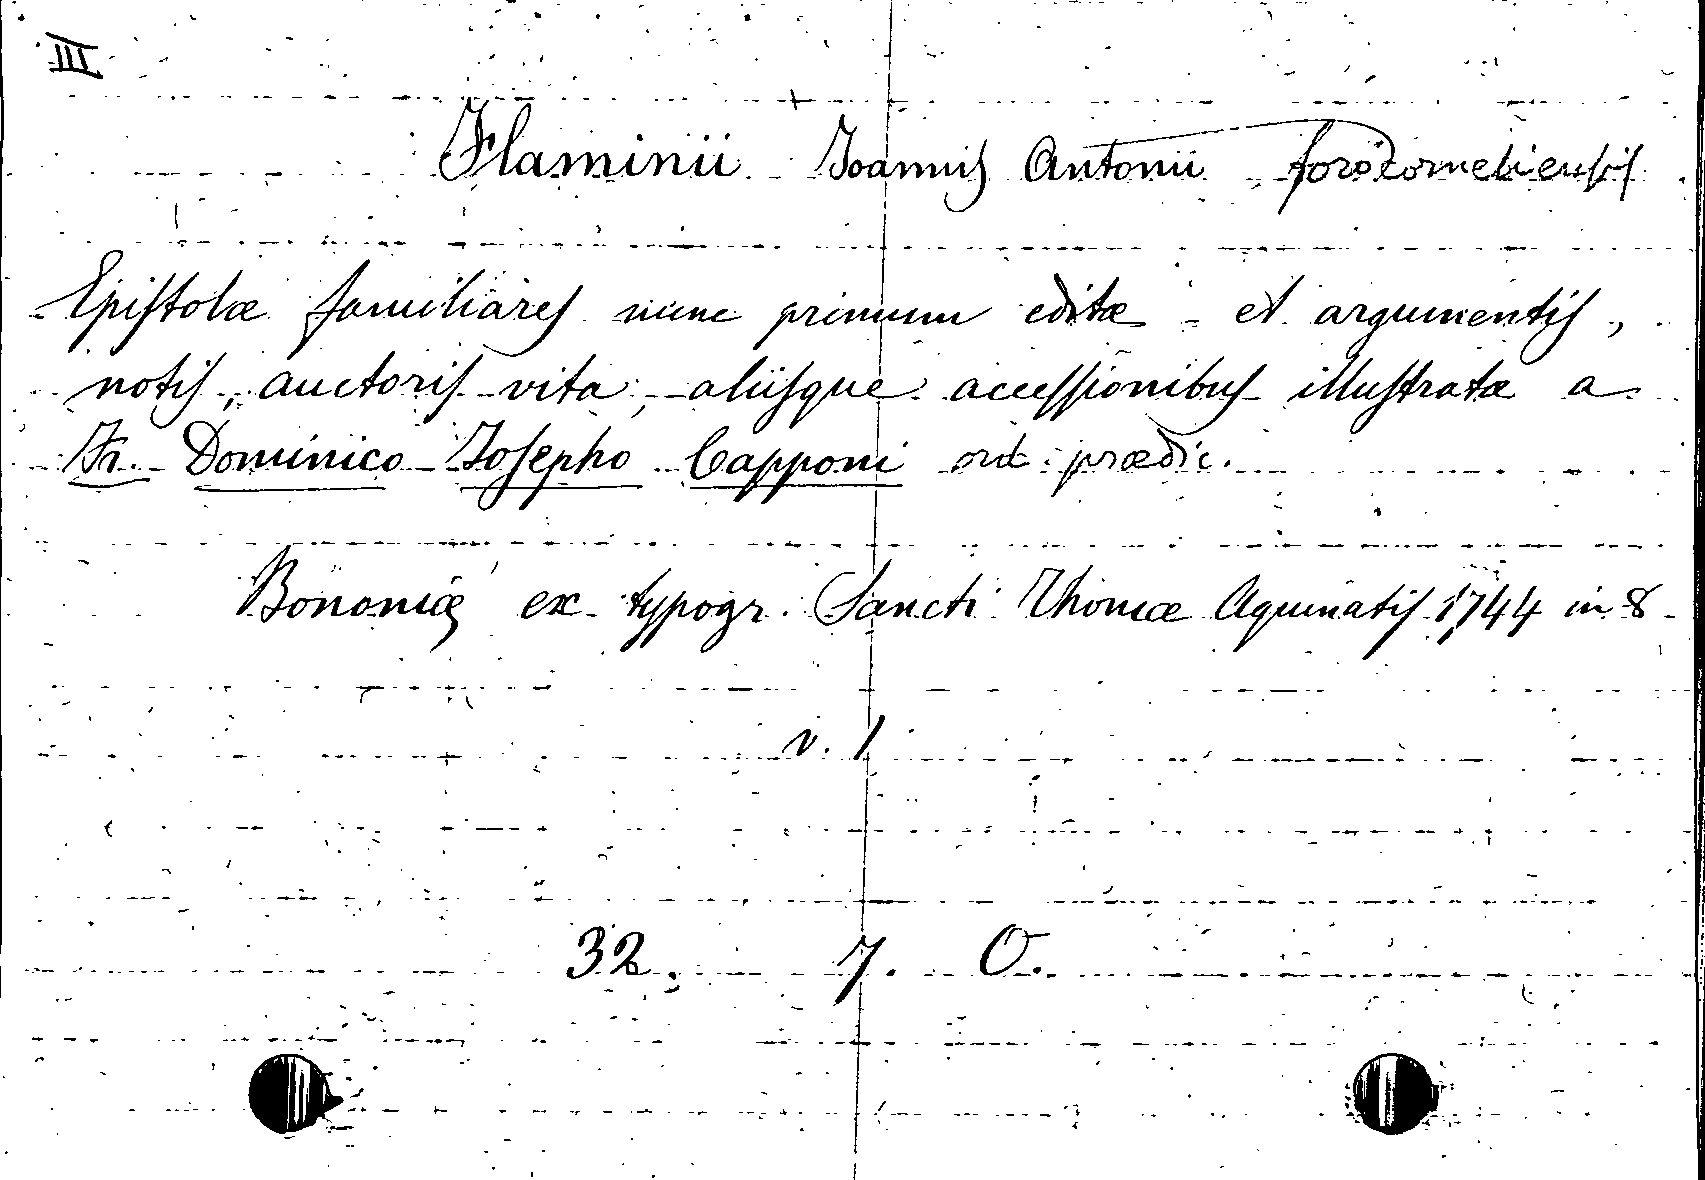 III
Flaminii Joannis Antonii forocorneliensis
Epistolæ familiares nunc primum editæ et argumentis,
notis, auctoris vita, aliisque accessionibus illustratæ a
Fr. Dominico Josepho Capponi ord. prædic.
Bononiæ ex typogr. Sancti Thomæ Aquinatis 1744 in 8
v. 1
32. 7. O.